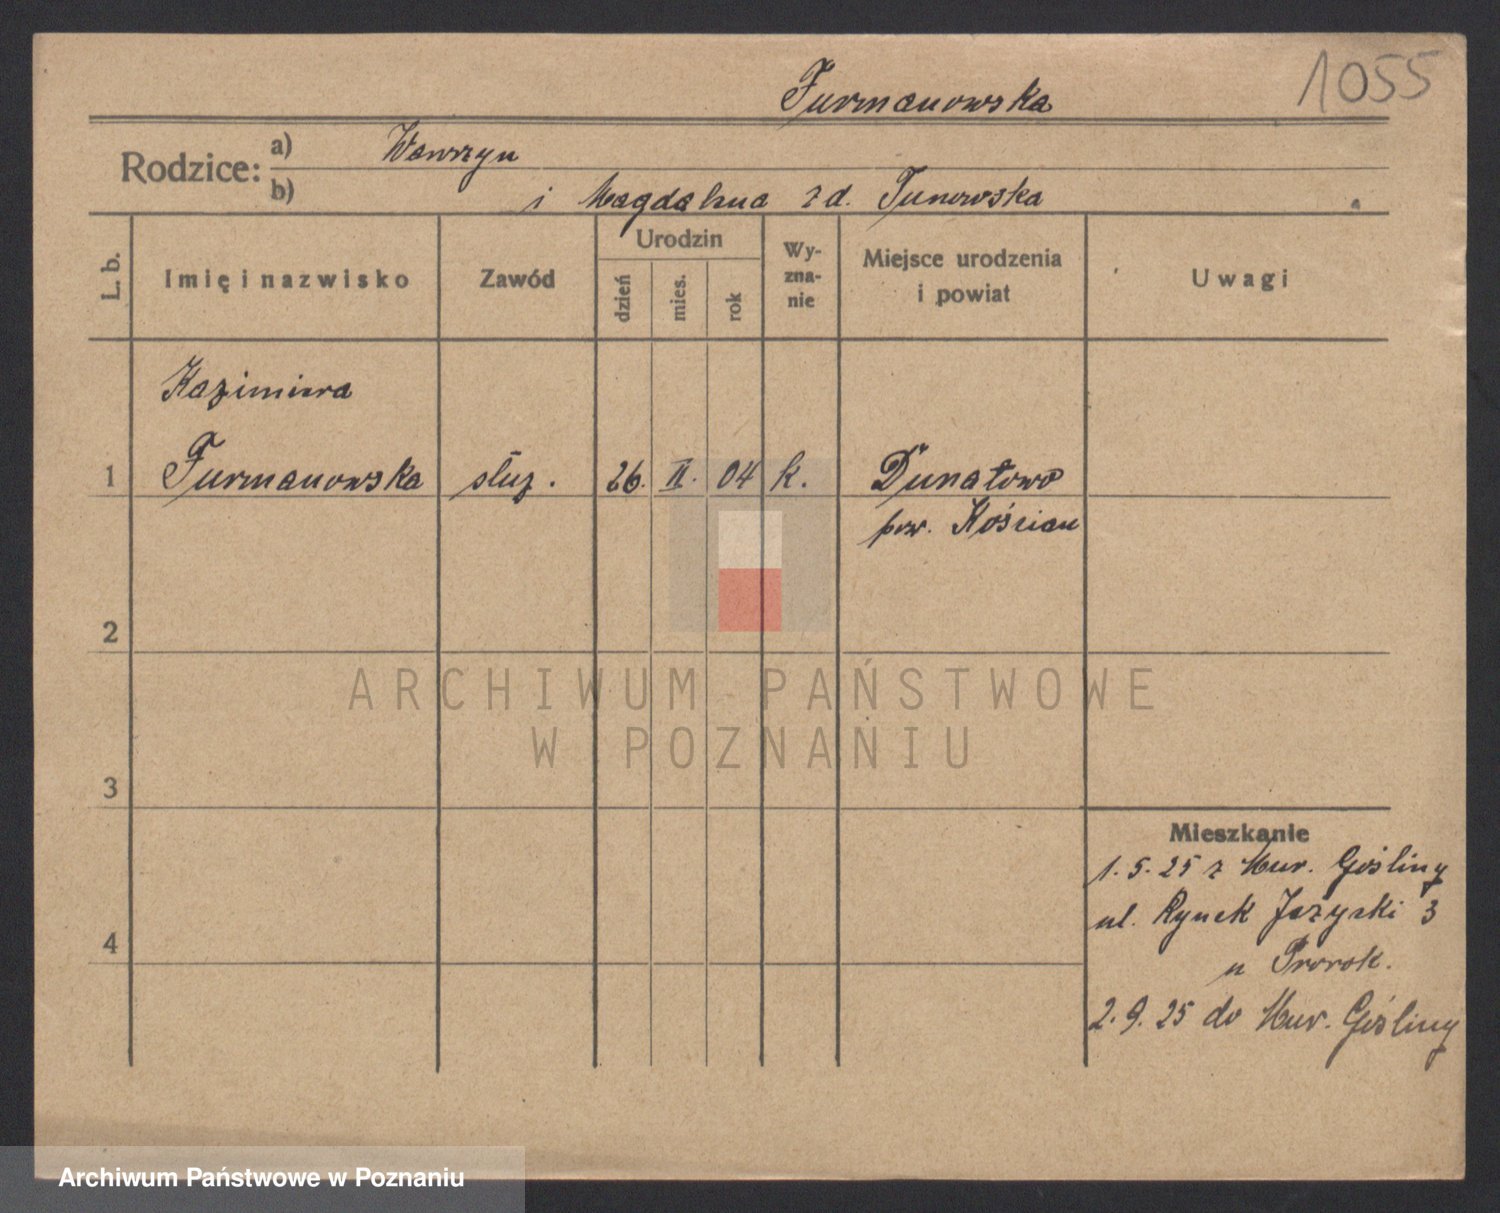 1055
Furmanowska
Rodzice:
a) Wawrzyn
b) i Magdalena z d. Tunowska
L. b.
Imię i nazwisko
Zawód
Urodzin
dzień
mies.
rok
Wy-
zna-
nie
Miejsce urodzenia
i powiat
Uwagi
Kazimiera
1 Furmanowska służ. 26. II. 04 k. Dunatowo
pow. Kościan
2
ARCHIWUM PAŃSTWOWE
W POZNANIU
3
Mieszkanie
1. 5. 25 z Mur. Gośliny
ul. Rynek Jeżycki 3
4
u Prorok.
2. 9. 25 do Mur. Gośliny
Archiwum Państwowe w Poznaniu